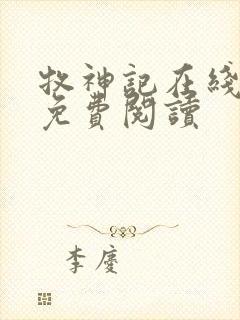 牧神記在綫
免費閱讀
李慶